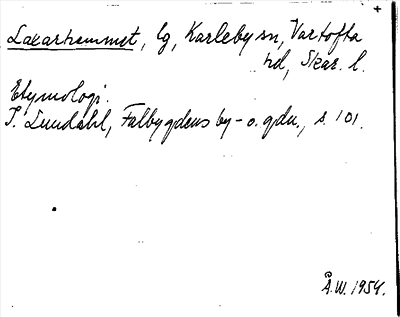 Laxarhemmet, lg, Karleby sn, Vartofta
hd, Skar. l.
Etymologi.
I. Lundahl, Falbygdens by- o. gdn., s. 101.
Å.W. 1954.